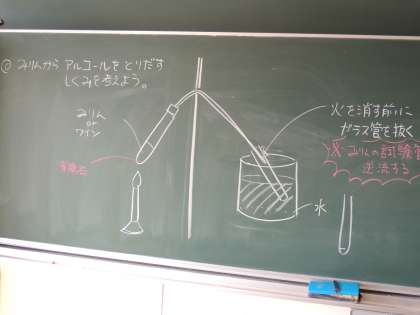 ◎ みりんから アルコールを とりだす
しくみを考えよう。
みりん
or
ワイン
沸騰石
火を消す前に
ガラス管を抜く
※みりんの試験管
逆流する
水